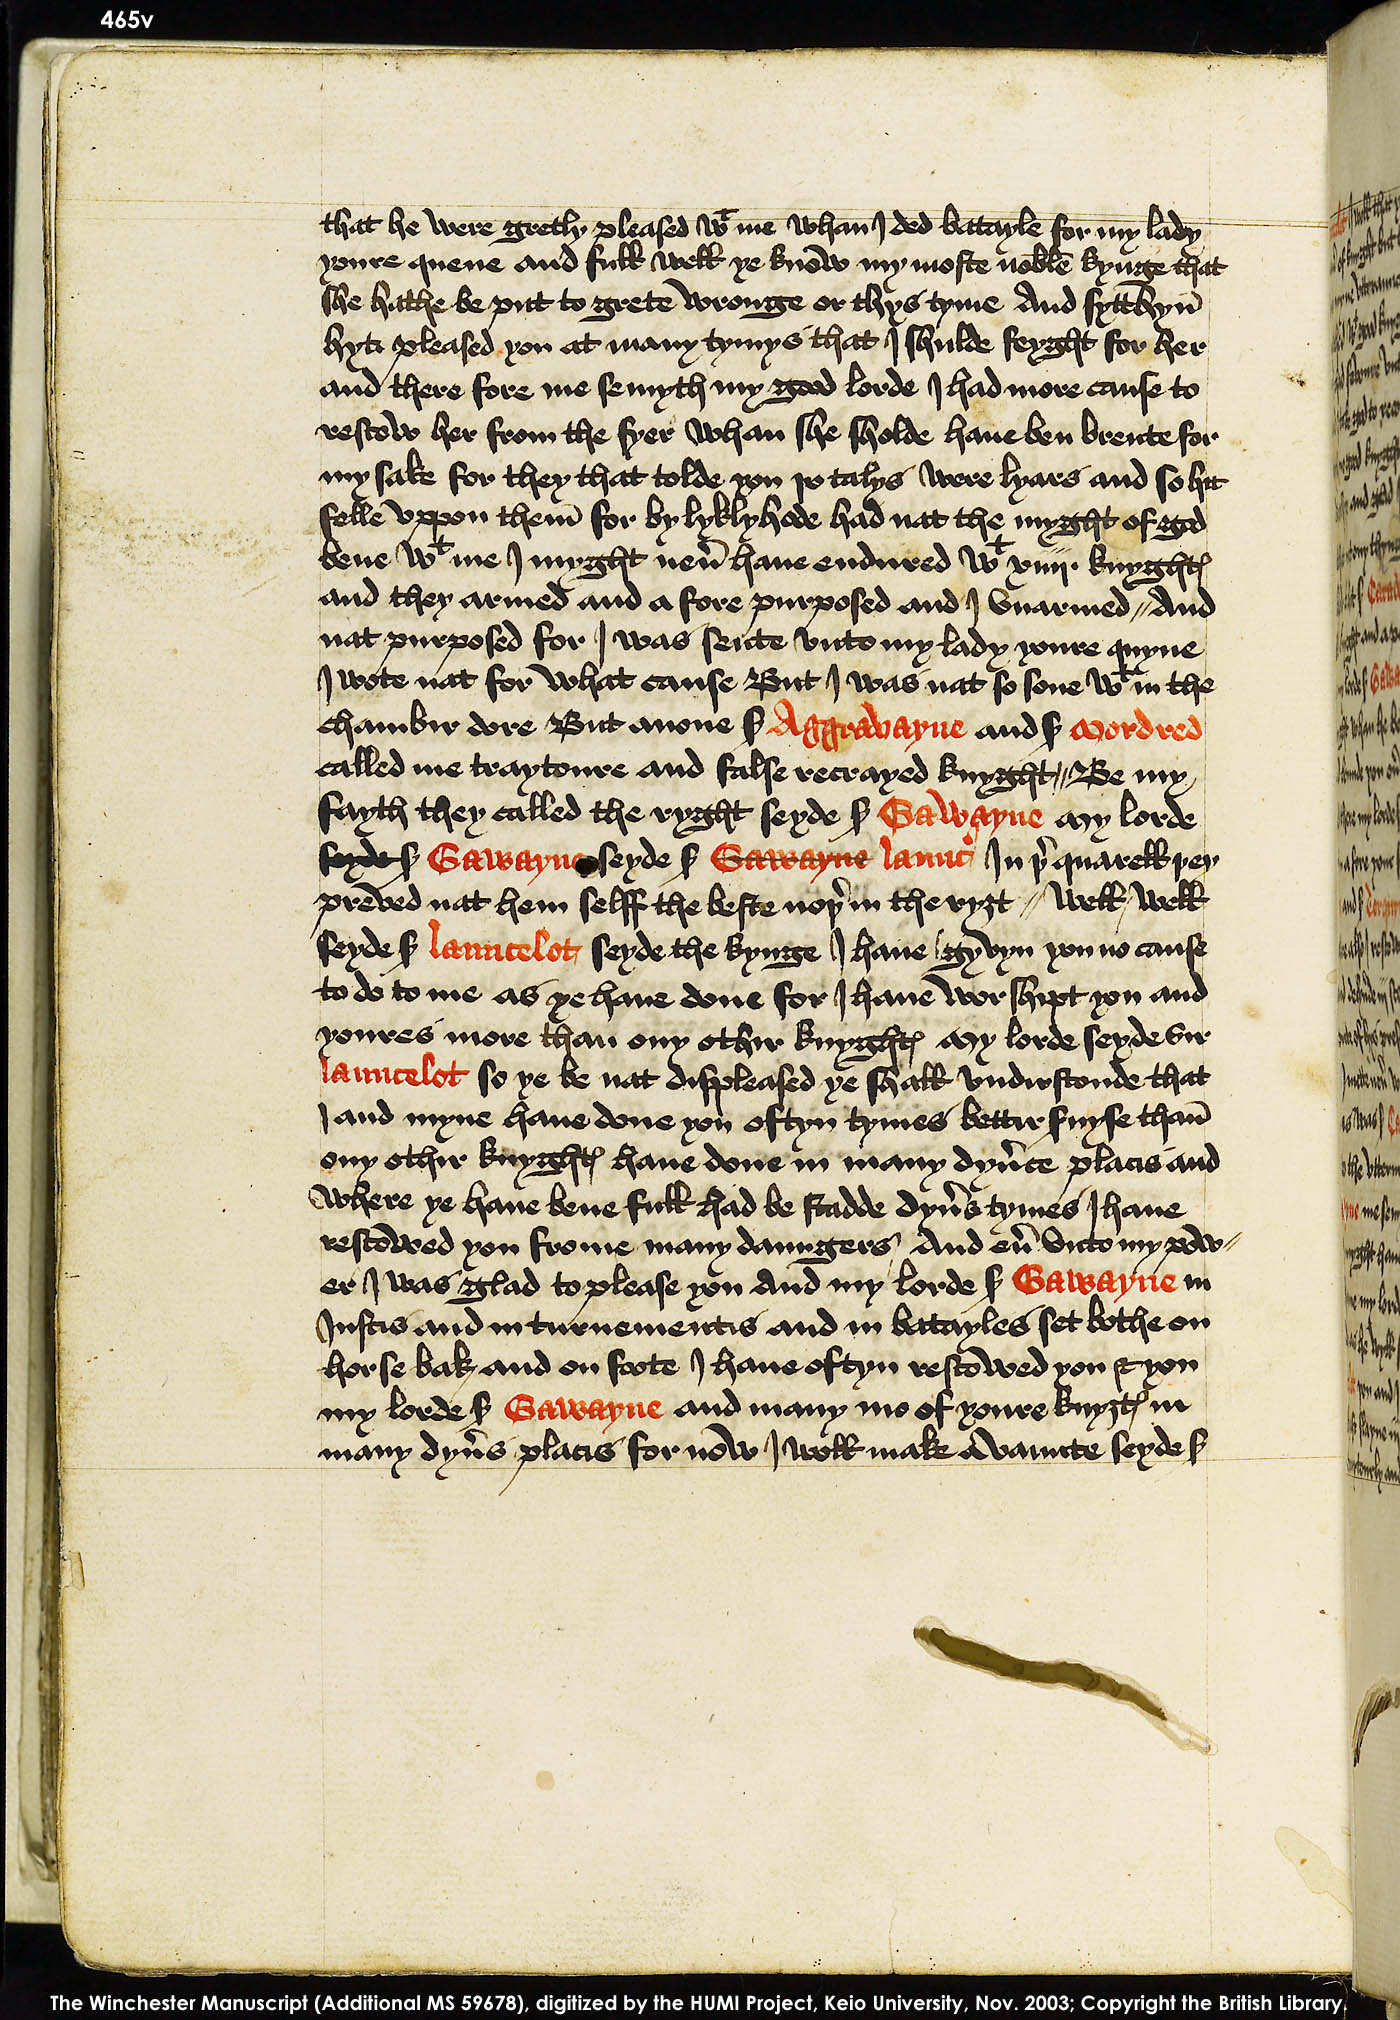 465v
that he were gretly pleased wt me whan I ded batayle for my lady
youre quene and full well ye know my moste noble kynge that
she hathe be put to grete wronge or thys tyme And sytthyn
hyt pleased you at many tymys that I shulde feyght for her
and there fore me semyth my good lorde I had more cause to
rescow her from the fyer whan she sholde haue ben brente for
my sake for they that tolde you yo talys were lyars and so hit
felle vppon them for by lyklyhode had nat the myght of god
bene wt me I myght neu̾ haue endured wt xiiij. knyghtꝭ
and they armed and a fore purposed and I vnarmed // And
nat purposed for I was sente vnto my lady youre quyne
I wote nat for what cause But I was nat so sone wt in the
chambir dore But anone ẜ Aggravayne and ẜ Mordred
called me traytoure and false recrayed knyght // Be my
fayth they called the ryght seyde ẜ Gawayne My lorde
seyde ẜ Gawayne seyde ẜ Gawayne launc̾ In þr̾ quarell þey
preved nat hem selff the beste noþr̾ in the ryȝt // Well / well
seyde ẜ launcelot seyde the kynge I haue gyvyn you no cause
to do to me as ye haue done for I haue worshipt you and
youres more than ony othir knyghtꝭ My lorde seyde sir
launcelot so ye be nat displeased ye shall vndirstonde that
I and myne haue done you oftyn tymes bettir s̾uyse than
ony othir knyghtꝭ haue done in many dyu̾ce placis and
where ye haue bene full had be stadde dyu̾s tymes I haue
rescowed you frome many daungers And eu̾ vnto my pow //
er I was glad to please you And my lorde ẜ Gawayne in
Iustis and in turnementis and in batayles set bothe on
horse bak and on foote I haue oftyn rescowed you & you
my lorde ẜ Gawayne and many mo of youre knyȝtꝭ in
many dyu̾s placis for now I woll make avaunte seyde ẜ
The Winchester Manuscript (Additional MS 59678), digitized by the HUMI Project, Keio University, Nov. 2003; Copyright the British Library.